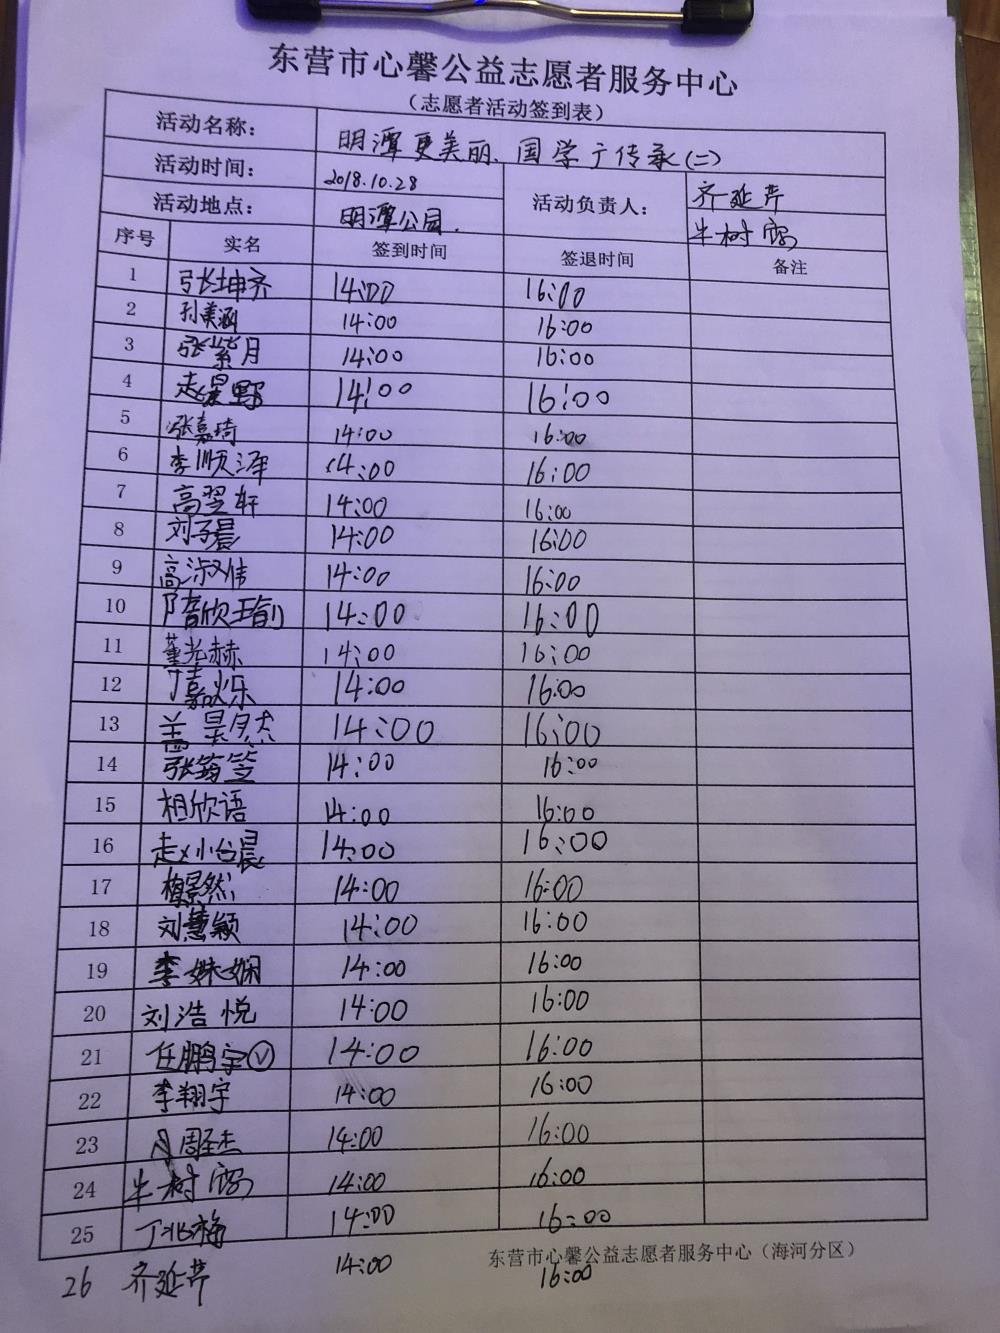 东营市心馨公益志愿者服务中心
（志愿者活动签到表）
活动名称： 明潭更美丽、国学广传承(二)
活动时间： 2018.10.28 活动负责人： 齐延芹
活动地点： 明潭公园. 牛树鸾
序号 实名 签到时间 签退时间 备注
1 张坤齐 14:00 16:00
2 孙美涵 14:00 16:00
3 张紫月 14:00 16:00
4 赵星野 14:00 16:00
5 张嘉琦 14:00 16:00
6 李顺泽 14:00 16:00
7 高翌轩 14:00 16:00
8 刘子晨 14:00 16:00
9 高淑伟 14:00 16:00
10 14:00 16:00
11 董光赫 14:00 16:00
12 丁嘉烁 14:00 16:00
13 盖昊然 14:00 16:00
14 14:00 16:00
15 相欣语 14:00 16:00
16 14:00 16:00
17 梅景然 14:00 16:00
18 刘慧颖 14:00 16:00
19 李姝娴 14:00 16:00
20 刘浩悦 14:00 16:00
21 任鹏宇 14:00 16:00
22 李翔宇 14:00 16:00
23 14:00 16:00
24 牛树鸾 14:00 16:00
25 丁兆梅 14:00 16:00
东营市心馨公益志愿者服务中心（海河分区）
26 齐延芹 14:00 16:00